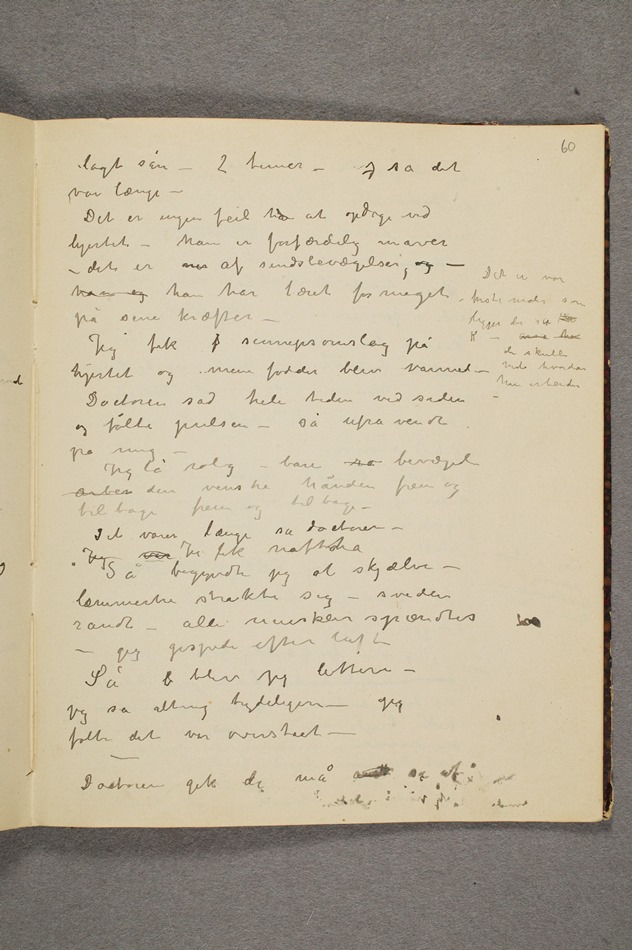 60
lagt sån – 2 timer – sa det
var længe –
Det er ingen feil at opdage ved
hjertet – han er forfærdelig mavver
– det er af sindsbevægelser, og –
han og han har tæret for meget
på sine kræfter –
Jeg fik sennepsomslag på
hjertet og mine fødder blev varmed –
Doctoren sad hele tiden ved siden
og følte pulsen – så ufravendt
på mig –
Jeg lå rolig – bare bevæget
den venstre hånden frem og
tilbage frem og tilbage –
Det varer længe sa doctoren –
Jeg Jeg fik naftha
Så begyndte jeg at skjælve –
lemmerne strakte sig – sveden
randt – alle muskler spændtes
– jeg gispede efter luft
Så blev jeg lettere –
jeg sa alting tydeligere – jeg
følte det var overstået –
Doctoren gik de må
Det er vor
som
bygger de
de skulle
vide hvordan
han arbeider